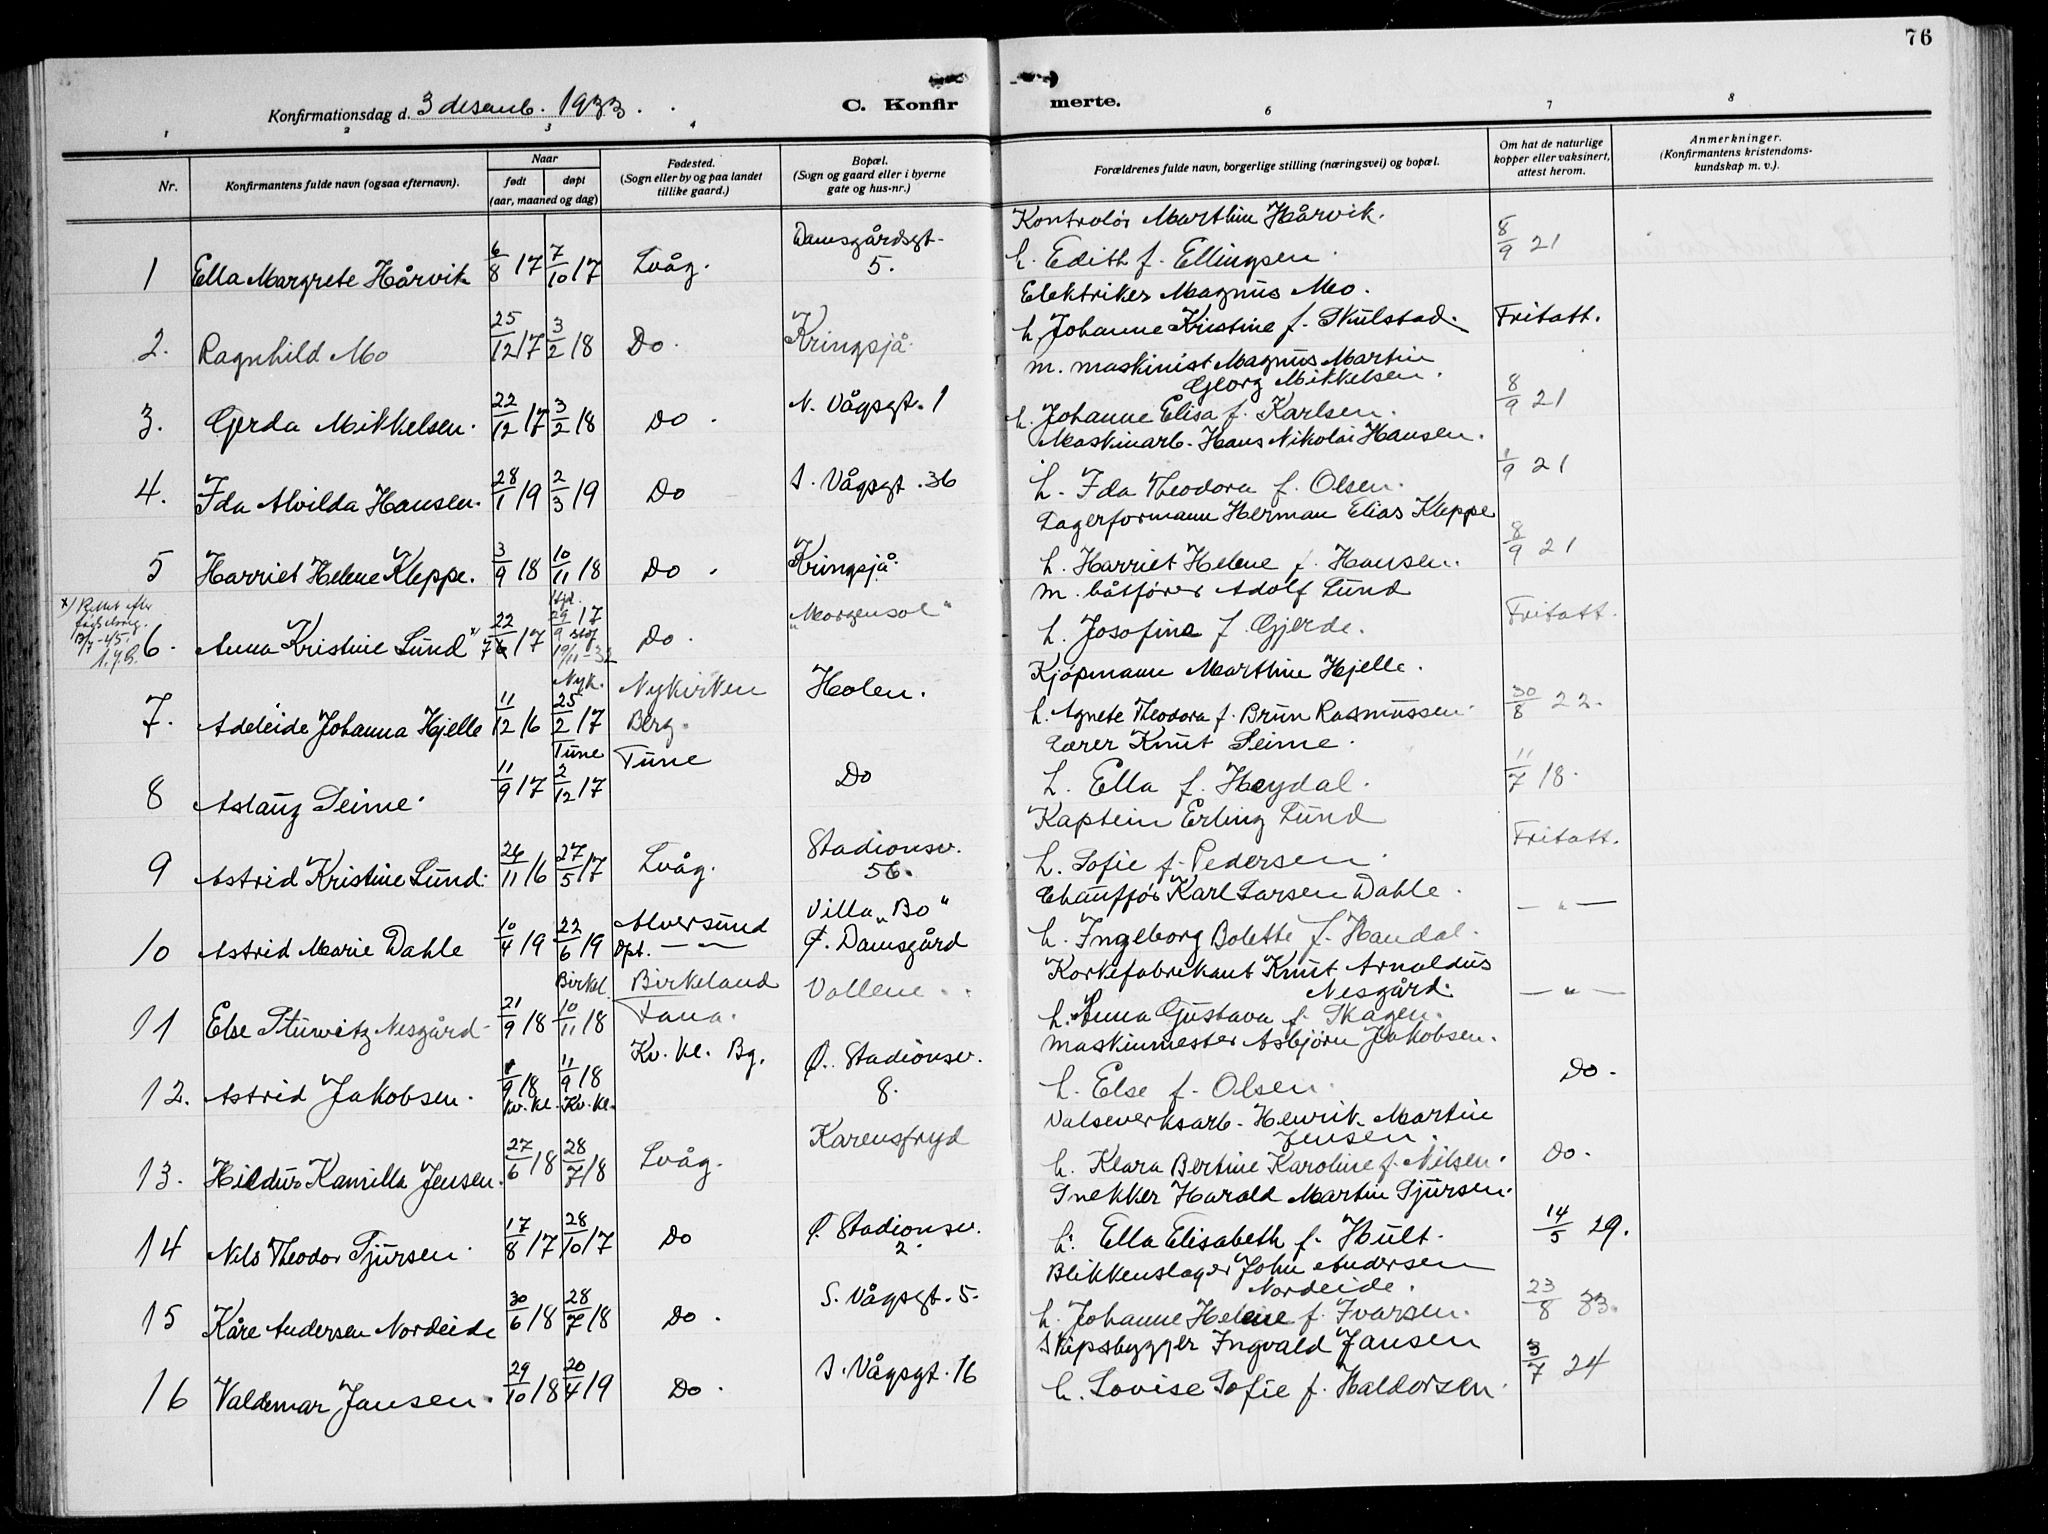 76
Konfirmationsdag d. 3 desemb. 1933.
C. Konfirmerte.
1 2 3 4 6 7 8
Nr.
Konfirmantens fulde navn (ogsaa efternavn).
Naar
født døpt
(aar, maaned og dag)
Fødested.
(Sogn eller by og paa landet
tillike gaard.)
Bopæl.
(Sogn og gaard eller i byerne
gate og hus-nr.)
Forældrenes fulde navn, borgerlige stilling (næringsvei) og bopæl.
Om hat de naturlige
kopper eller vaksinert,
attest herom.
Anmerkninger.
(Konfirmantens kristendoms-
kundskap m. v.).
1 Ella Margrete Hårvik 6/8 17 7/10 17 Lvåg. Damsgårdsgt. 5. Kontrolør Marthin Hårvik. h. Edith f. Ellingsen. 8/9 21
2. Ragnhild Mo 25/12 17 3/2 18 Do. Kringsjå. Elektriker Magnus Mo. h. Johanne Kristine f. Skulstad. Fritatt.
3. Gerda Mikkelsen. 22/12 17 3/2 18 Do. N. Vågsgt. 1 m. maskinist Magnus Martin Georg Mikkelsen. h. Johanne Elisa f. Karlsen. 8/9 21
4. Ida Alvilda Hansen. 28/1 19 2/3 19 Do S. Vågsgt. 36 Maskinarb. Hans Nikolai Hansen. h. Ida Theodora f. Olsen. 1/9 21
5 Harriet Helene Kleppe. 3/9 18 10/11 18 Do. Kringsjå. Lagerformann Herman Elias Kleppe h. Harriet Helene f. Hansen. 8/9 21
x) Rettet efter
13/7-45.
6. Anna Kristine Lund x) 22/7 17 Hjd. 29/9 17 stad. 19/11-32 Do. "Morgensol" m. båtfører Adolf Lund h. Josofine f. Gjerde. Fritatt.
7. Adeleide Johanna Hjelle 11/12 16 Nyk. 25/2 17 Nykirken Berg. Holen. Kjøpmann Marthin Hjelle. h. Agnete Theodora f. Brun Rasmussen. 30/8 22.
8 Aslaug Seime. 11/9 17 Tune 2/12 17 Tune Do Lærer Knut Seime. h. Ella f. Heydal. 11/7 18.
9 Astrid Kristine Lund. 26/11 16 27/5 17 Lvåg. Stadionsv. 56. Kaptein Erling Lund h. Sofie f. Pedersen. Fritatt.
10 Astrid Marie Dahle 10/4 19 22/6 19 Alversund Dpt. — " — Villa "Bo" Ø. Damsgård Chauffør Karl Larsen Dahle. h. Ingeborg Bolette f. Handal. — " —
11 Else Sturwitz Nesgård. 21/9 18 Birkel. 10/11 18 Birkeland Fana. Vollene. Korkefabrikant Knut Arnoldus Nesgård. h. Anna Gustava f. Skagen. — " —
12. Astrid Jakobsen. 1/9 18 Kv. kl. 11/9 18 Kv. kl. Kv. kl. Bg. Ø. Stadionsv. 8. Maskinmester Asbjørn Jakobsen. h. Else f. Olsen. Do.
13. Hildur Kamilla Jensen. 27/6 18 28/7 18 Lvåg. Karensfryd Valseverksarb. Henrik Martin Jensen. h. Klara Bertine Karoline f. Nilsen. Do.
14 Nils Theodor Sjursen. 17/8 17 28/10 17 Do Ø. Stadionsv. 2. Snekker Harald Martin Sjursen. h. Ella Elisabeth f. Hult. 14/5 29.
15 Kåre Andersen Nordeide 30/6 18 28/7 18 Do. S. Vågsgt. 5. Blikkenslager John Andersen Nordeide. h. Johanne Helene f. Ivarsen. 23/8 33.
16 Valdemar Jansen. 29/10 18 20/4 19 Do. S. Vågsgt. 16 Skipsbygger Ingvald Jansen h. Lovise Sofie f. Haldorsen. 3/7 24